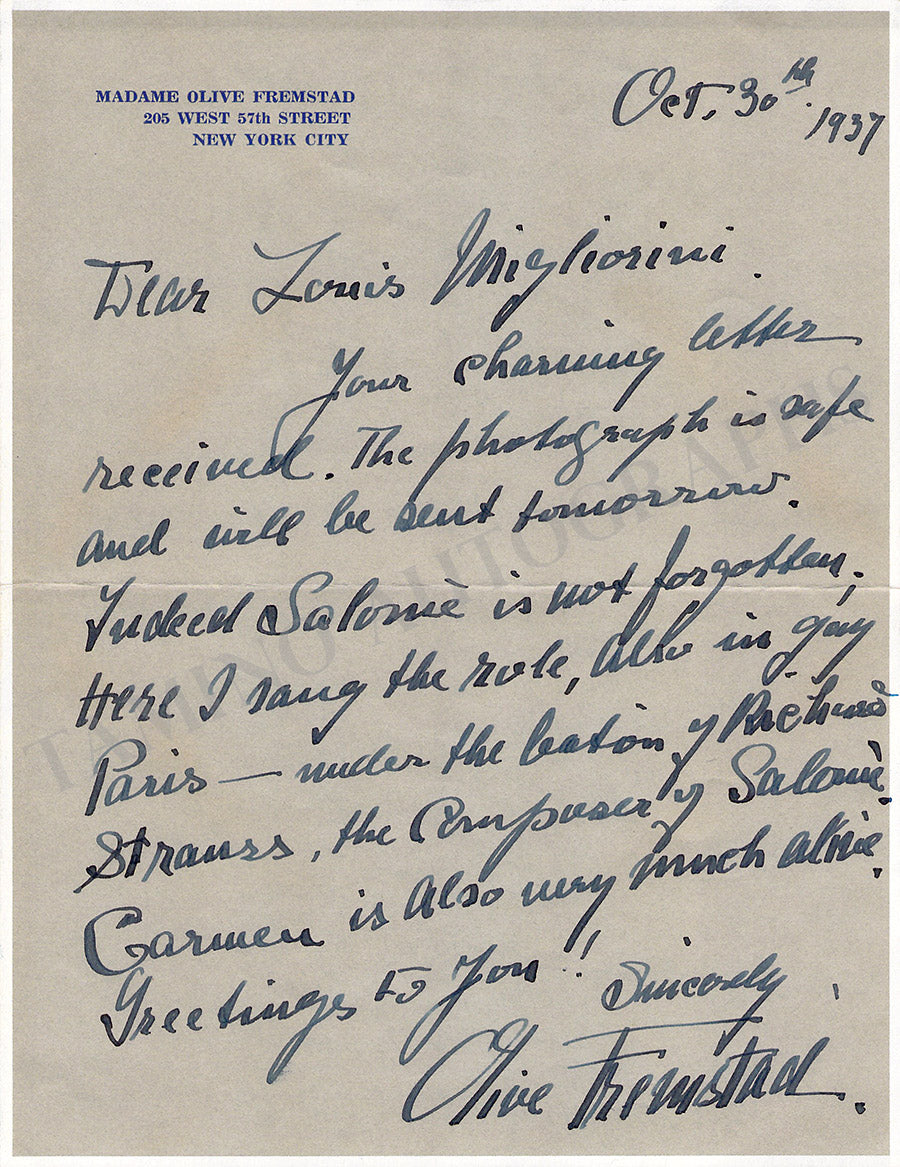 MADAME OLIVE FREMSTAD
205 WEST 57th STREET
NEW YORK CITY
Oct, 30th.
1937
Dear Louis Migliorini.
Your charming letter
received. The photograph is safe
and will be sent tomorrow.
Indeed Salomè is not forgotten,
Here I sang the role, also in gay
Paris — under the baton of Richard
Strauss, the Composer of Salomè.
Carmen is also very much alive.
Greetings to You!
Sincerely,
Olive Fremstad.
TAMINO AUTOGRAPHS